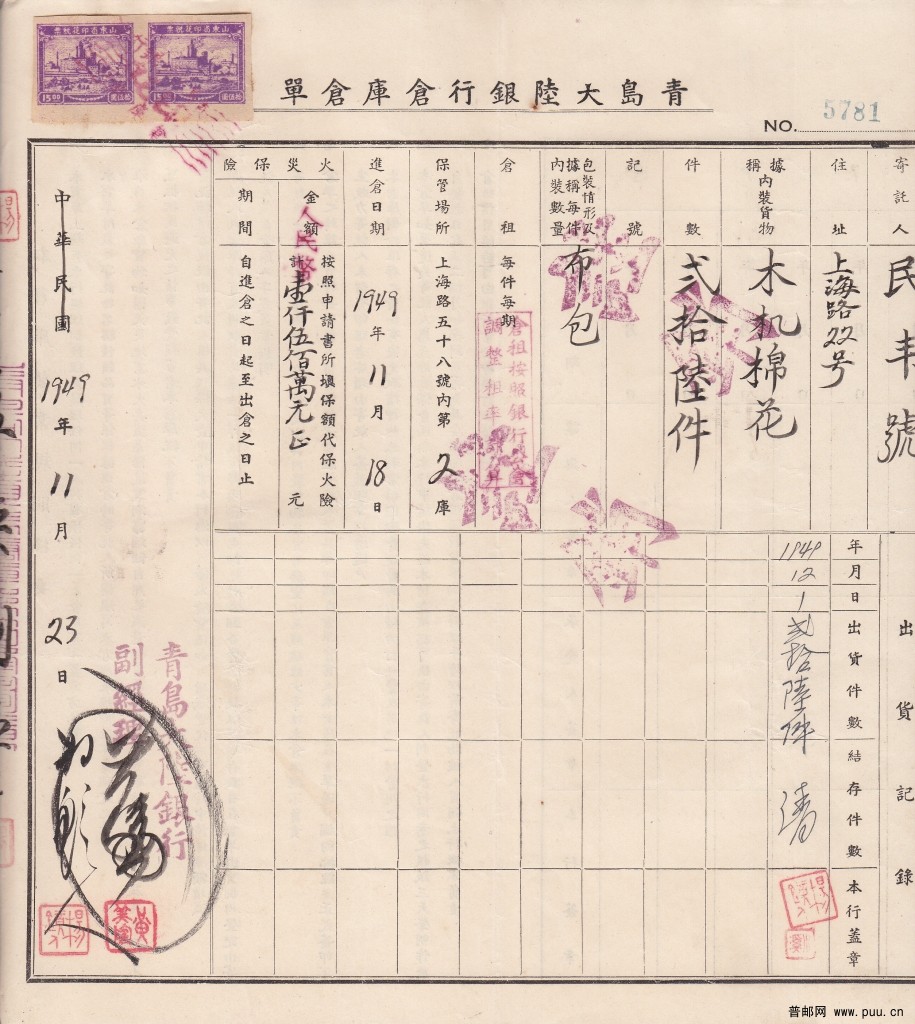 山東省印花稅票
15.00
拾伍圓
山東省印花稅票
15.00
拾伍圓
青島大陸銀行倉庫倉單
NO. 5781
寄託人
民丰號
住址
上海路22号
據稱內裝貨物
木机棉花
件數
貳拾陸件
記號
包裝情形及據稱每件內裝數量
布包
倉租
每件每期
倉租按照銀行倉
調整租率計算
保管場所
上海路五十八號內第2庫
進倉日期
1949年11月18日
火災保險
金額
人民幣
按照申請書所塡保額代保火險
計壹仟伍佰萬元正元
期間
自進倉之日起至出倉之日止
出貨記錄
年
月
日
出貨件數
結存件數
本行蓋章
1949
12
1
貳拾陸件
清
中華民國1949年11月23日
青島大陸銀行
副經理
普邮网 www.puu.cn